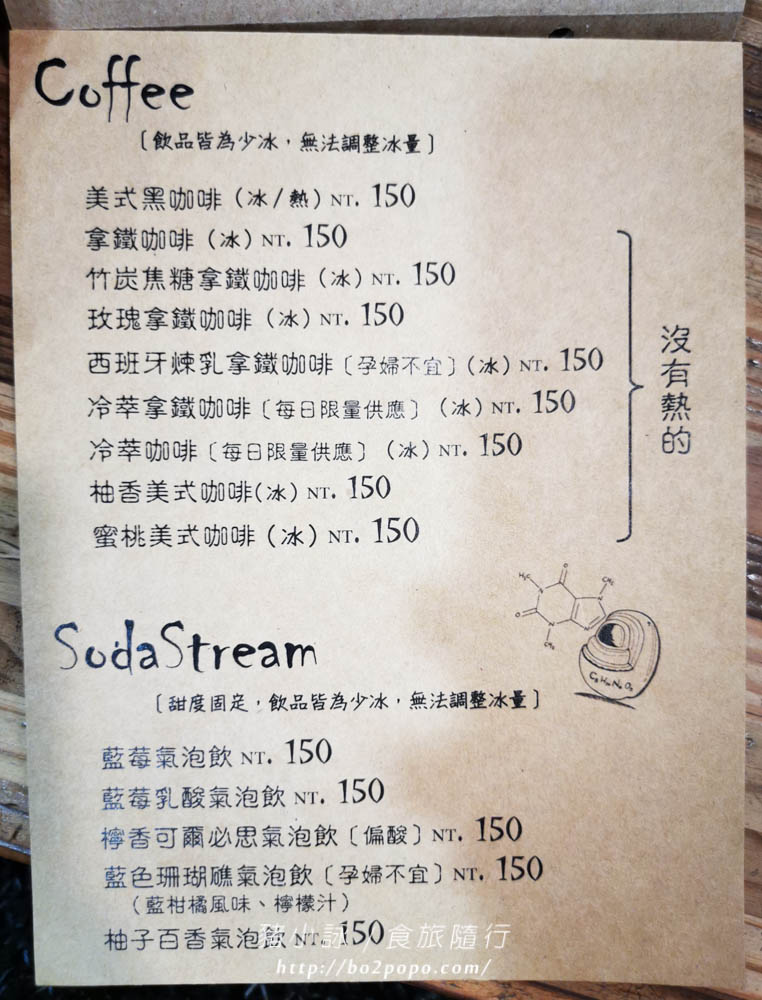 Coffee
〔飲品皆為少冰，無法調整冰量〕
美式黑咖啡（冰/熱）NT. 150
拿鐵咖啡（冰）NT. 150
竹炭焦糖拿鐵咖啡（冰）NT. 150
玫瑰拿鐵咖啡（冰）NT. 150
西班牙煉乳拿鐵咖啡〔孕婦不宜〕（冰）NT. 150
冷萃拿鐵咖啡〔每日限量供應〕（冰）NT. 150
冷萃咖啡〔每日限量供應〕（冰）NT. 150
柚香美式咖啡(冰) NT. 150
蜜桃美式咖啡（冰）NT. 150
沒有熱的
SodaStream
〔甜度固定，飲品皆為少冰，無法調整冰量〕
藍莓氣泡飲 NT. 150
藍莓乳酸氣泡飲 NT. 150
檸香可爾必思氣泡飲〔偏酸〕NT. 150
藍色珊瑚礁氣泡飲〔孕婦不宜〕NT. 150
（藍柑橘風味、檸檬汁）
柚子百香氣泡飲 NT. 150
豬小詠 / 食旅隨行
http://bo2popo.com/